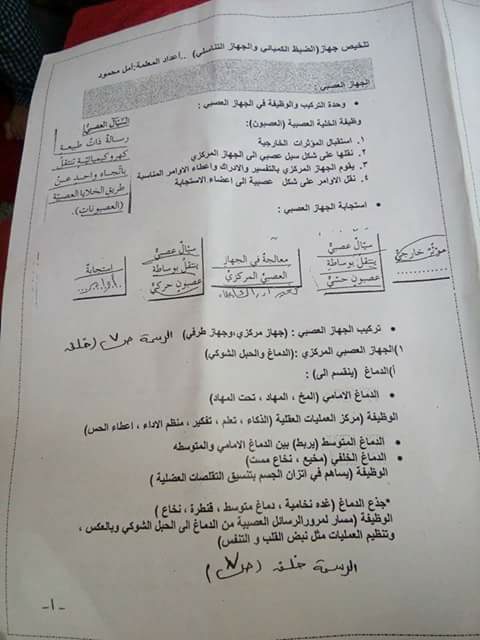 تلخيص جهاز(الضبط الكيميائي والجهاز التناسلي) ..أعداد المعلمة:امل محمود
الجهاز العصبي :
• وحدة التركيب والوظيفة في الجهاز العصبي :
وظيفة الخلية العصبية (العصبون):
١. استقبال المؤثرات الخارجية
٢. نقلها على شكل سيل عصبي الى الجهاز المركزي
٣. يقوم الجهاز المركزي بالتفسير والادراك وأعطاء الاوامر المناسبة
٤. نقل الاوامر على شكل عصبية الى اعضاء الاستجابة
السيّال العصبيّ
رسالة ذات طبيعة
كهروكيميائية تنتقل
باتّجاه واحد عن
طريق الخلايا العصبية
(العصبونات).
• استجابة الجهاز العصبي :
مؤثر خارجيّ
سيّال عصبيّ
ينتقل بوساطة
عصبون حسّيّ
معالجة في الجهاز
العصبيّ المركزيّ
سيّال عصبيّ
ينتقل بوساطة
عصبون حركيّ
استجابة
• تركيب الجهاز العصبي : (جهاز مركزي،وجهاز طرفي) الرسمة ص٧ (خلف
١)الجهاز العصبي المركزي :(الدماغ والحبل الشوكي)
أ)الدماغ (ينقسم الى) :
• الدماغ الامامي (المخ ، المهاد ، تحت المهاد)
الوظيفة (مركز العمليات العقلية (الذكاء ، تعلم ، تفكير ، منظم الاداء ، اعطاء الحس)
• الدماغ المتوسط (يربط) بين الدماغ الامامي والمتوسطه
• الدماغ الخلفي (مخيخ ، نخاع مست)
الوظيفة (يساهم في اتزان الجسم بتنسيق التقلصات العضلية )
*جذع الدماغ (غده نخامية ، دماغ متوسط ، قنطرة ، نخاع )
الوظيفة (مسار لمرورالرسائل العصبية من الدماغ الى الحبل الشوكي وبالعكس ،
وتنظيم العمليات مثل نبض القلب و التنفس)
الرسمة خلف (ص٧)
-١-